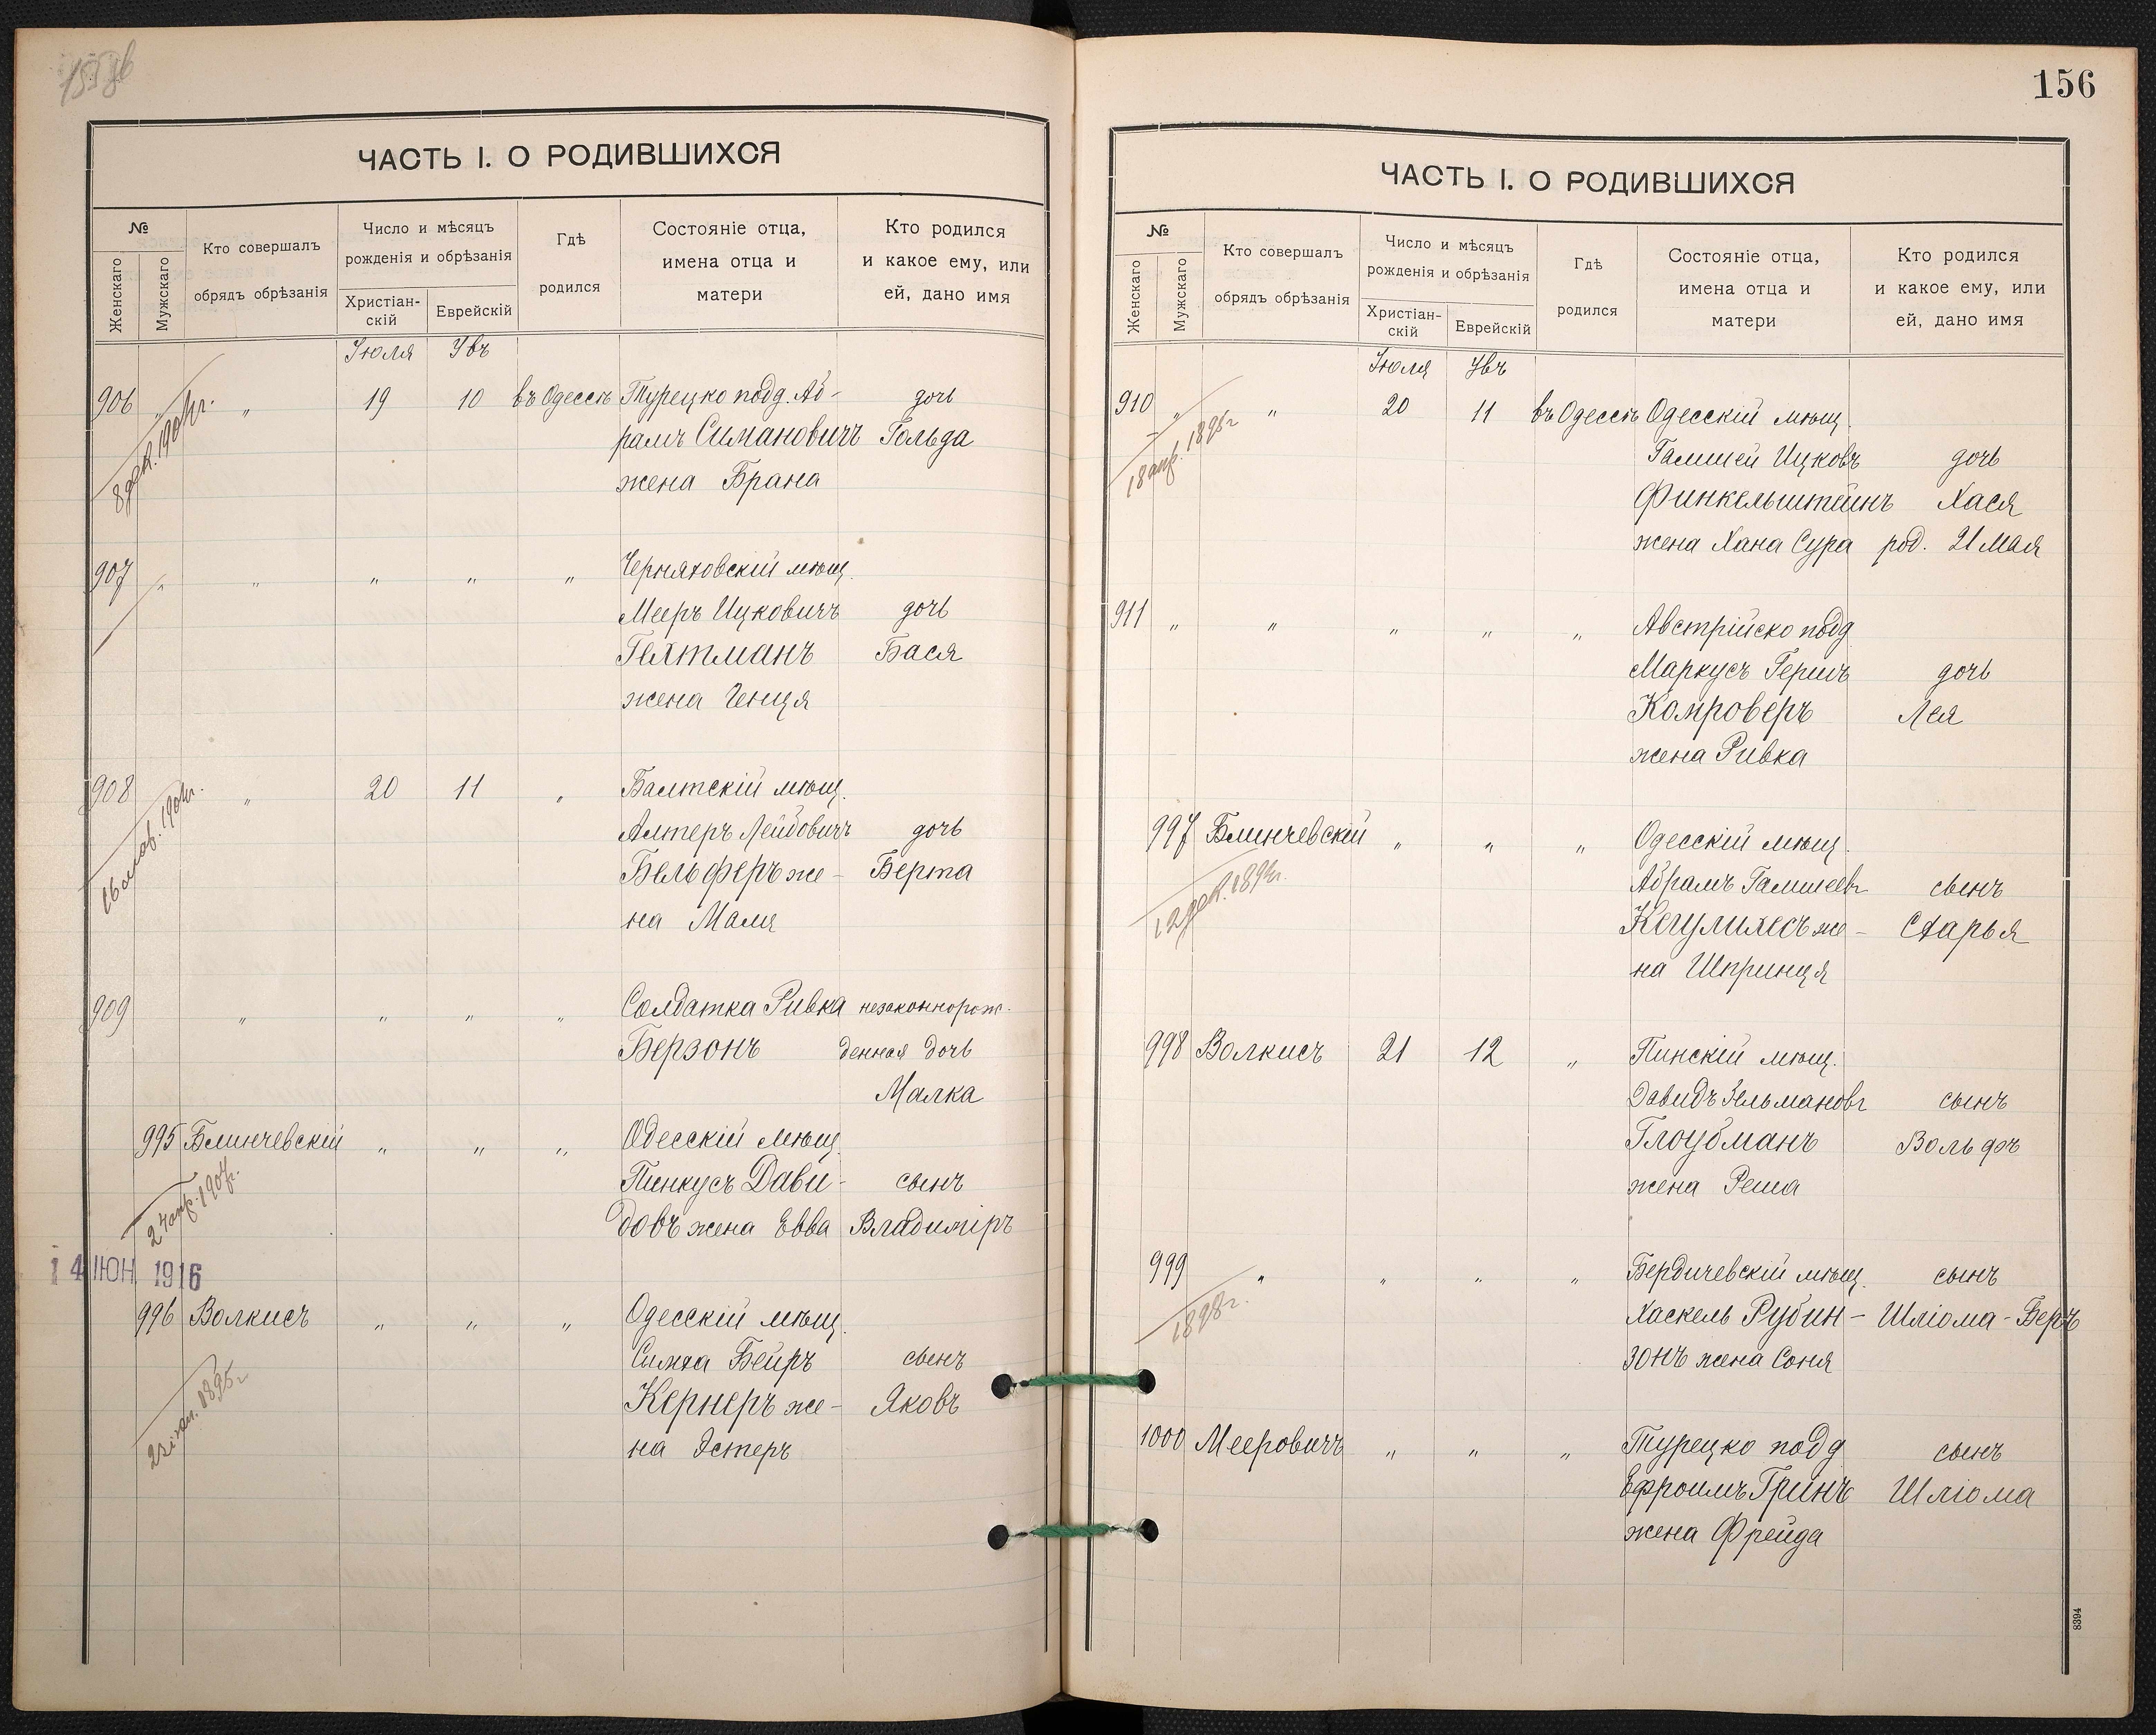 ЧАСТЬ I. О РОДИВШИХСЯ
№
Женскаго
Мужскаго
Кто совершалъ
обрядъ обрѣзанія
Число и мѣсяцъ
рожденія и обрѣзанія
Христіан-
скій
Еврейскій
Гдѣ
родился
Состояніе отца,
имена отца и
матери
Кто родился
и какое ему, или
ей, дано имя
Іюля Увъ
906 „ „ 19 10 въ Одессѣ Турецко подд. Аб- дочь
рамъ Симановичъ Гольда
жена Брана
907 „ „ „ „ „ Черняховскій мѣщ.
Мееръ Ицковичъ дочь
Гехтманъ Бася
жена Генця
908 „ 20 11 „ Балтскій мѣщ.
Алтеръ Лейбовичъ дочь
Бельферъ же- Берта
на Маля
909 „ „ „ „ Солдатка Ривка незаконнорож-
Берзонъ денная дочь
Малка
995 Блинчевскій „ „ „ Одесскій мѣщ
Пинкусъ Дави- сынъ
довъ жена Евва Владиміръ
14 ІЮН 1916
996 Волкисъ „ „ „ Одесскій мѣщ.
Симха Бейръ сынъ
Кернеръ же- Яковъ
на Эстеръ
156
ЧАСТЬ I. О РОДИВШИХСЯ
№
Женскаго
Мужскаго
Кто совершалъ
обрядъ обрѣзанія
Число и мѣсяцъ
рожденія и обрѣзанія
Христіан-
скій
Еврейскій
Гдѣ
родился
Состояніе отца,
имена отца и
матери
Кто родился
и какое ему, или
ей, дано имя
Іюля Увъ
910 „ „ 20 11 въ Одессѣ Одесскій мѣщ.
18 апр. 1895 г
Гамшей Ицковъ дочь
Финкельштейнъ Хася
жена Хана Сура род. 21 мая
911 „ „ „ „ „ Австрійско подд
Маркусъ Гершъ дочь
Комроверъ Лея
жена Ривка
997 Блинчевскій „ „ „ Одесскій мѣщ.
Абрамъ Гамшеевъ сынъ
же- Схарья
на Шпринця
998 Волкисъ 21 12 „ Пинскій мѣщ.
Давидъ Зельмановъ сынъ
Глоубманъ Вольфъ
жена Реша
999 „ „ „ „ Бердичевскій мѣщ. сынъ
1898 г.
Хаскель Рубин- Шліома-Беръ
зонъ жена Соня
1000 Мееровичъ „ „ „ Турецко подд сынъ
Ефроимъ Гринъ Шліома
жена Фрейда
8394